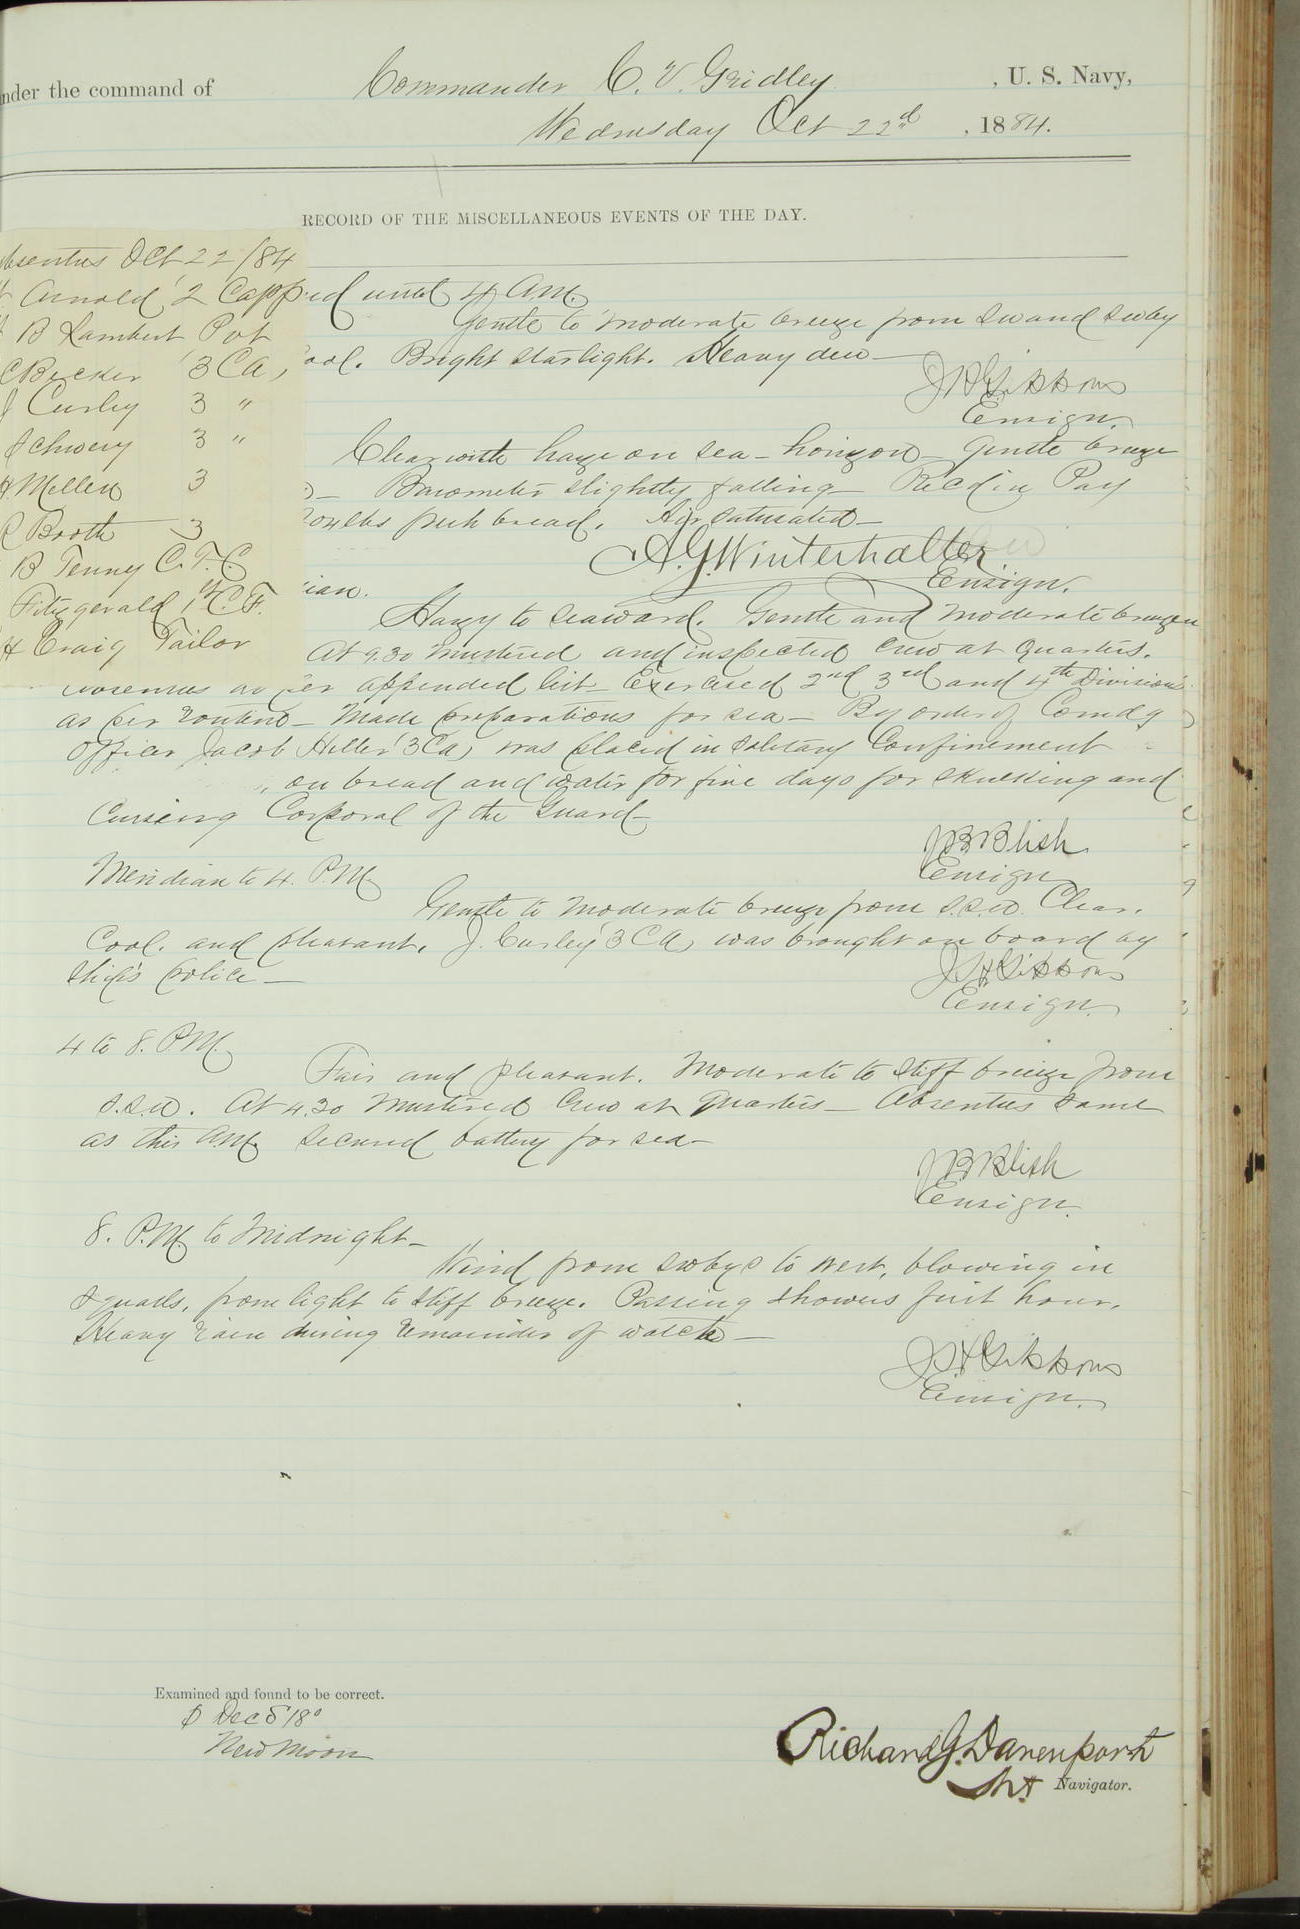 under the command of Commander C. V. Gridley, U. S. Navy,
Wednesday Oct 22d, 1884.
RECORD OF THE MISCELLANEOUS EVENTS OF THE DAY.
Absentees Oct 22/84
Arnold 2 Capp
B Lambert
C Becker 3 CA,
J Curley 3 "
Schwery 3 "
H Mellen 3
R Booth 3
B Tenny C. F. C.
Fitzgerald 1st C. F.
H Craig Tailor
until 4 A.M.
Gentle to moderate breeze from SW and SW by
Cool. Bright starlight. Heavy dew—
J H Gibbons
Ensign.
Clear with haze on sea-horizon— Gentle breeze
Barometer slightly falling— Rec'd in Pay
lbs fresh bread. Air saturated—
A. G. Winterhalter
Ensign.
ian.
Hazy to seaward. Gentle and moderate breezes
At 9.30 mustered and inspected crew at quarters.
Absentees as per appended list— Exercised 2nd 3rd and 4th Divisions
as per routine— Made preparations for sea— By order of Comdg
Officer Jacob Heller 3 CA, was placed in solitary confinement
on bread and water for five days for skulking and
cursing Corporal of the Guard—
J B Blish
Ensign
Meridian to 4. P.M.
Gentle to moderate breeze from S.S.W. Clear.
Cool. and pleasant. J. Curley 3 CA, was brought on board by
ship's police—
J H Gibbons
Ensign.
4 to 8. P.M.
Fair and pleasant. Moderate to stiff breeze from
S.S.W. At 4.30 mustered crew at quarters— Absentees same
as this A.M. Secured battery for sea—
J B Blish
Ensign.
8. P.M. to Midnight—
Wind from SW by S to West, blowing in
squalls, from light to stiff breeze. Passing showers first hour.
Heavy rain during remainder of watch—
J H Gibbons
Ensign.
Examined and found to be correct.
Dec 5 18°
New Moon
Richard G. Davenport
Lt Navigator.